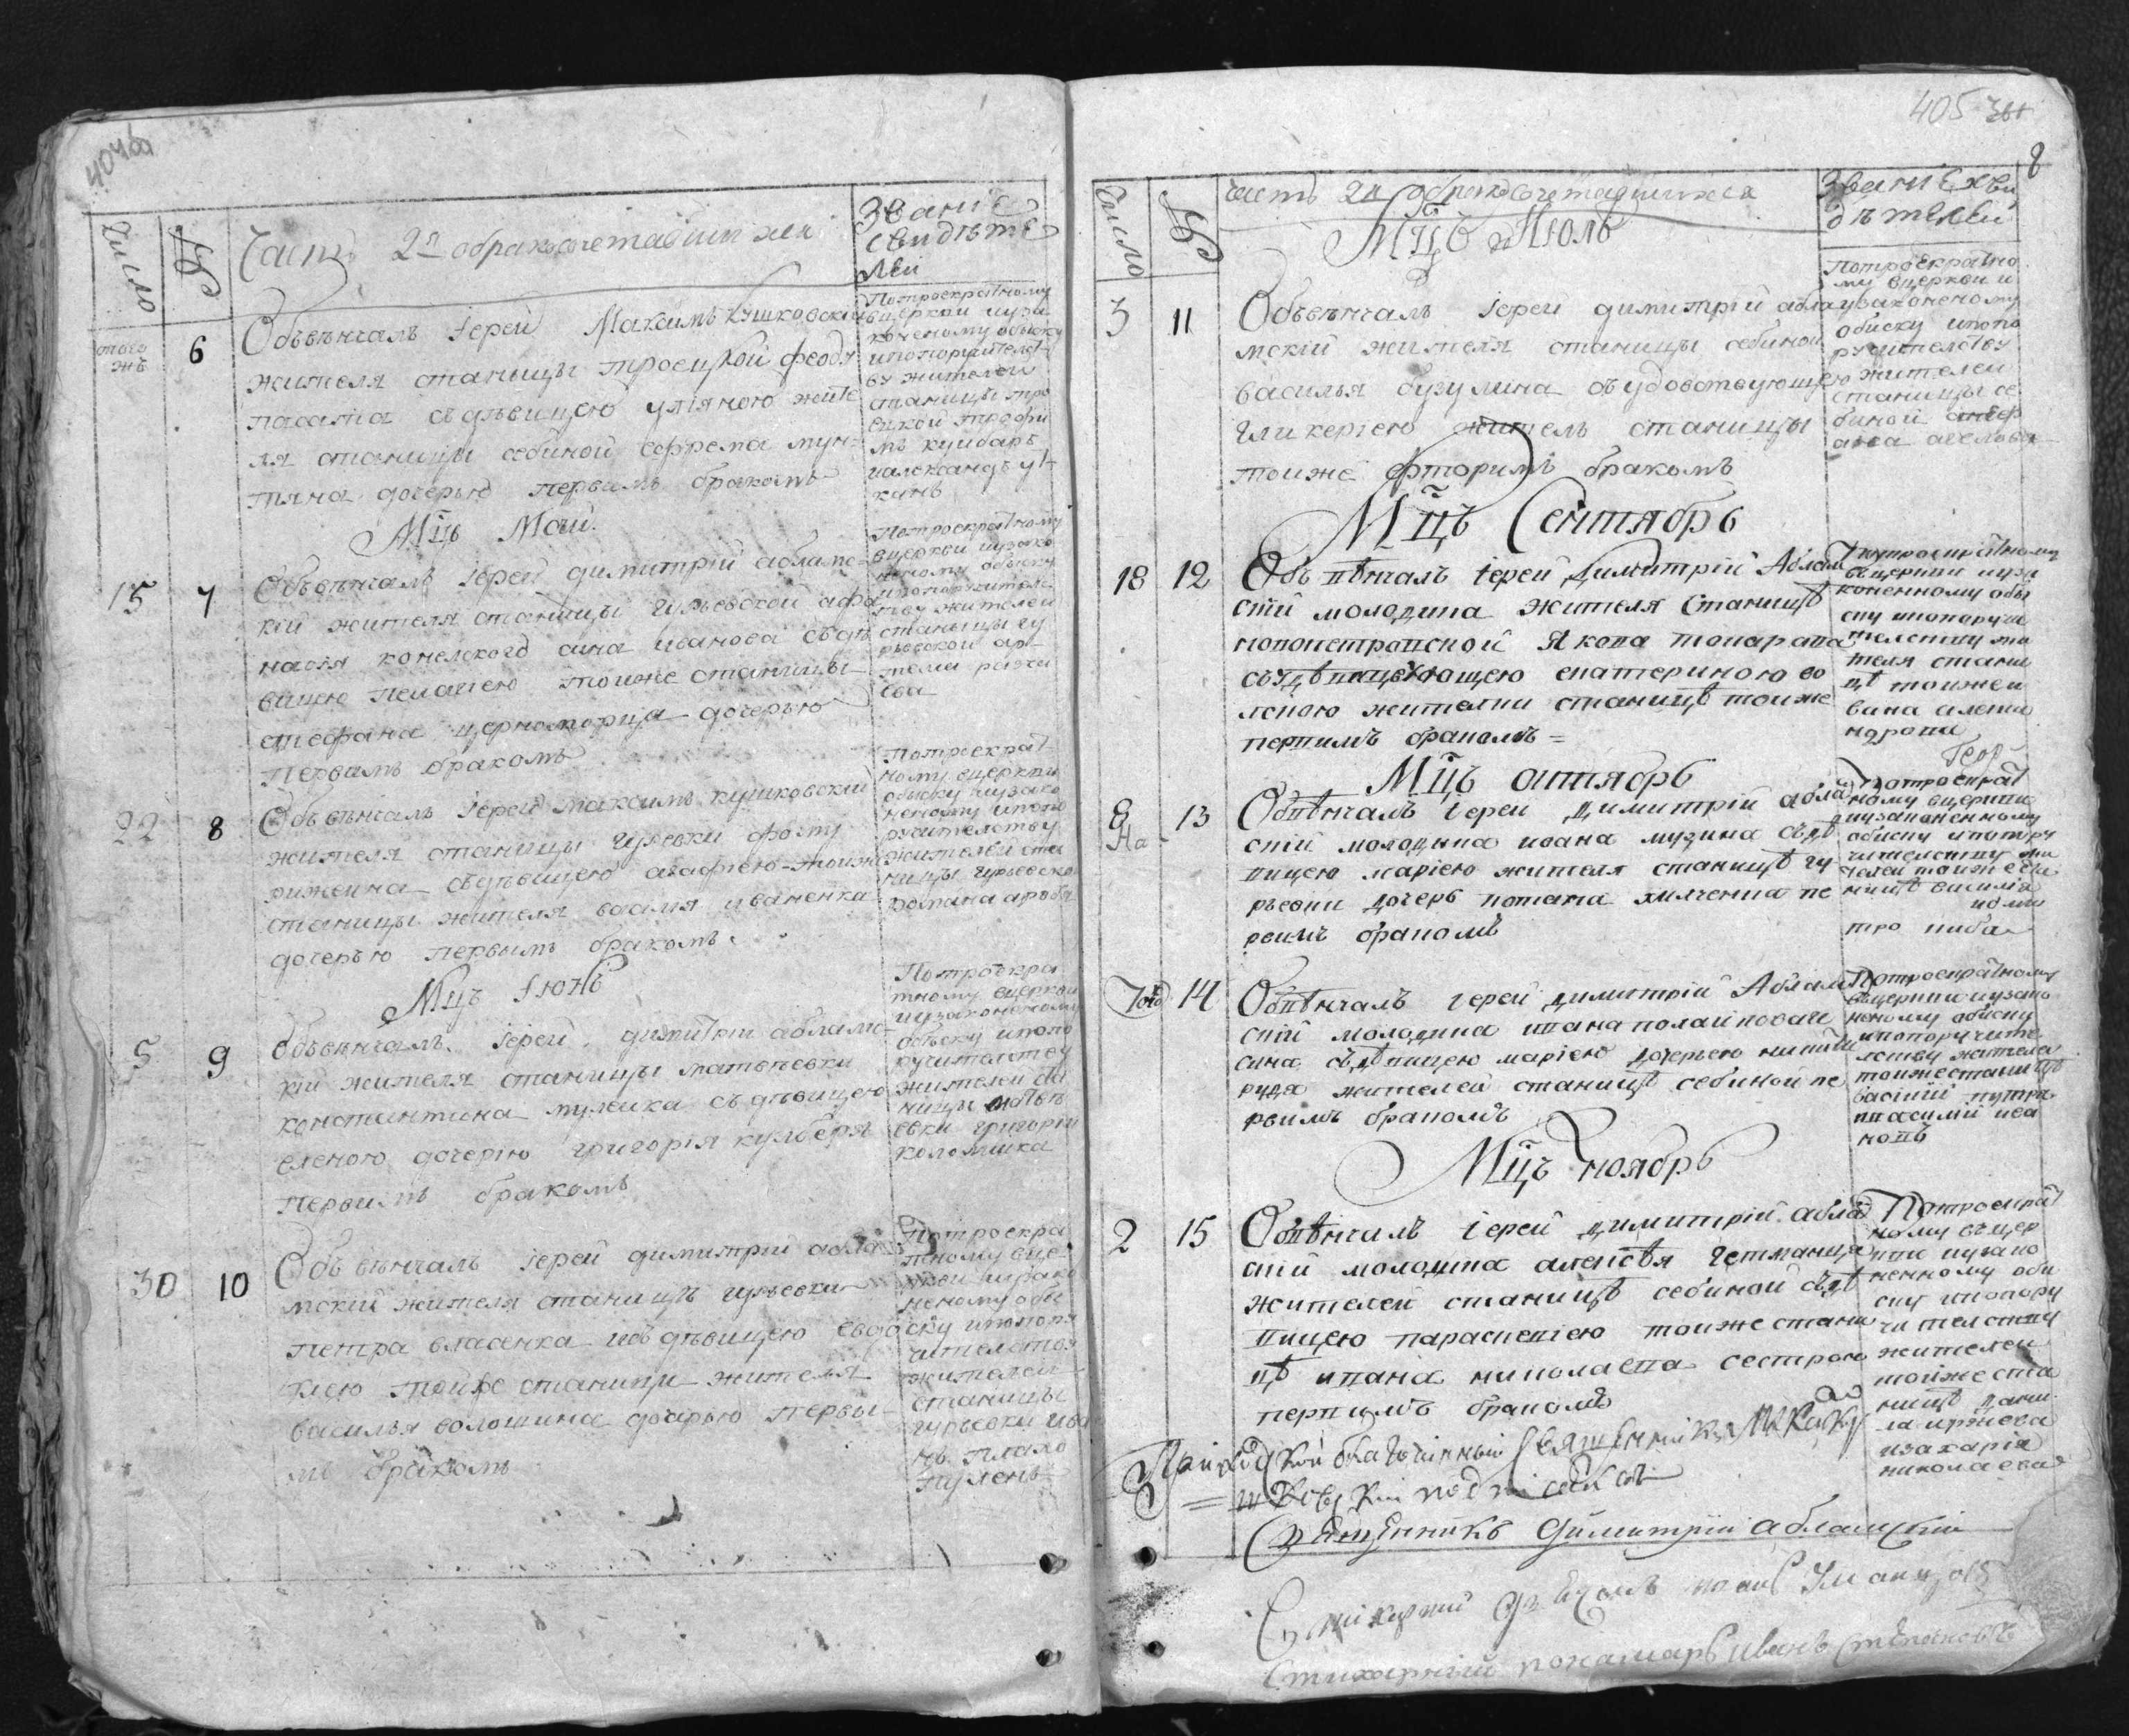 404об
Число
№
Часть 2я обракосочетавшихся
Звание
свидѣте
лей
тогоже
6
Обвѣнчалъ Іерей Максимъ Кушковский
жителя станыцы троецкой феодо
съ дѣвицею уліяною жите
ля станицы себиной ефрема мун-
тяна дочерью первымъ бракомъ
Потроекратному
вцеркви иуза
коненому обыску
ипопоручителст
ву жителей
станицы тро
ецкой трофи
мъ кушнарь
иалександъ
Мцъ Май
15
7
Обвѣнчалъ іерей димитрий абламс
кій жителя станицы гурьевской афа
насія конелского сина иванова съ дѣ
вицею пелагіею тоиже станицы
стефана церноморца дочерью
первимъ бракомъ
Потроекратному
вцеркви иузако
неному обыску
ипопоручителс
тву жителей
станыцы гу
рьевской ар
тема
22
8
Обвѣнчалъ іерей максимъ кушковский
жителя станицы гурьевки фому
рижеина съ дѣвицею агафіею тоиже
станицы жителя васмя иваненка
дочерью первымъ бракомъ
Потроекрат
ному вцеркви
обыску иузако
неному ипопо
ручителству
жителей ста
ницы гурьевской
романа
Мцъ Іюнь
5
9
Обвѣнчалъ іерей димитрій абламс
кій жителя станицы матвѣевки
константина мулеика съ дѣвицею
еленою дочерію григорія кулберя
первимъ бракомъ
Потроекра
тному вцеркви
иузаконеному
обыску ипопо
ручителству
жителей ста
ницы матвѣ
евки григорія
коломийка
30
10
Обвѣнчалъ іерей димитрій абла
мский жителя станицы гурьевки
петра власенка исъ дѣвицею евдо
кіею тойже станицы жителя
василья волошина дочерью первы
мъ бракомъ
Потроекра
тному вце
ркви иузако
неному обы
ску ипопору
чителству
жителей
станицы
гурьевки ива
нъ плахо
тиленъ
405
8
Число
№
Часть 2я обракосочетавшихся
Звание сви
дѣтелей
Мцъ Июль
3
11
Обвѣнчалъ іерей димитрій абла
мский жителя станицы себиной
василья бугулина съ удовствующею
гликеріею жытель станицы
тоиже фторимъ бракомъ
Потроекратно
му вцеркви и
узаконеному
обиску ипопо
ручителству
жителей
станицы се
биной
Мцъ Сентябрь
18
12
Обвѣнчалъ іерей Димитрій Аблам
скій молодика жителя станицѣ
новопетровской Якова токарава
съ екатериною во
лскою жителки станицѣ тоиже
первимъ бракомъ =
Потроекратному
вцеркви иуза
коненному обы
ску ипопоручи
телству жи
теля стани
цѣ тоижеи
Мцъ октябрь
8
13
Обвѣнчалъ іерей Димитрій абла
скій молодика ивана музина съ дѣ
вицею маріею жителя станицѣ гу
рьевки дочерь потапа химченка пе
рвимъ бракомъ
Потроекрат
ному вцеркви
иузаконенному
обиску ипопору
чителству жи
телей тоиже ста
ницѣ василія
Тогожъ
14
Обвѣнчалъ іерей димитрій Аблам
скій молодика ивана
сина съ дѣвицею маріею дочерью никити
руда жителей станицѣ себиной пе
рвимъ бракомъ
Потроекратному
вцеркви иузако
неному обиску
ипопоручите
лству жителей
тоиже станицѣ
василій
василій ива
новъ
Мцъ ноябрь
2
15
Обвѣнчалъ іерей димитрій абла
скій молодика алексѣя гетманца
жителей станицѣ себиной съ дѣ
вицею параскевіею тоиже стани
цѣ ивана николаева сестрою
первимъ бракомъ
Потроекрат
ному въцер
кви иузако
ненному оби
ску ипопору
чителству
жителей
тоиже ста
ницѣ дани
ла иржева
изахарія
николаева
Троицкой благочинный Священникъ Макс Ку
= шковский подписалъ
Священникъ Димитрій абламский
Стихарний понамарь иванъ Степановъ